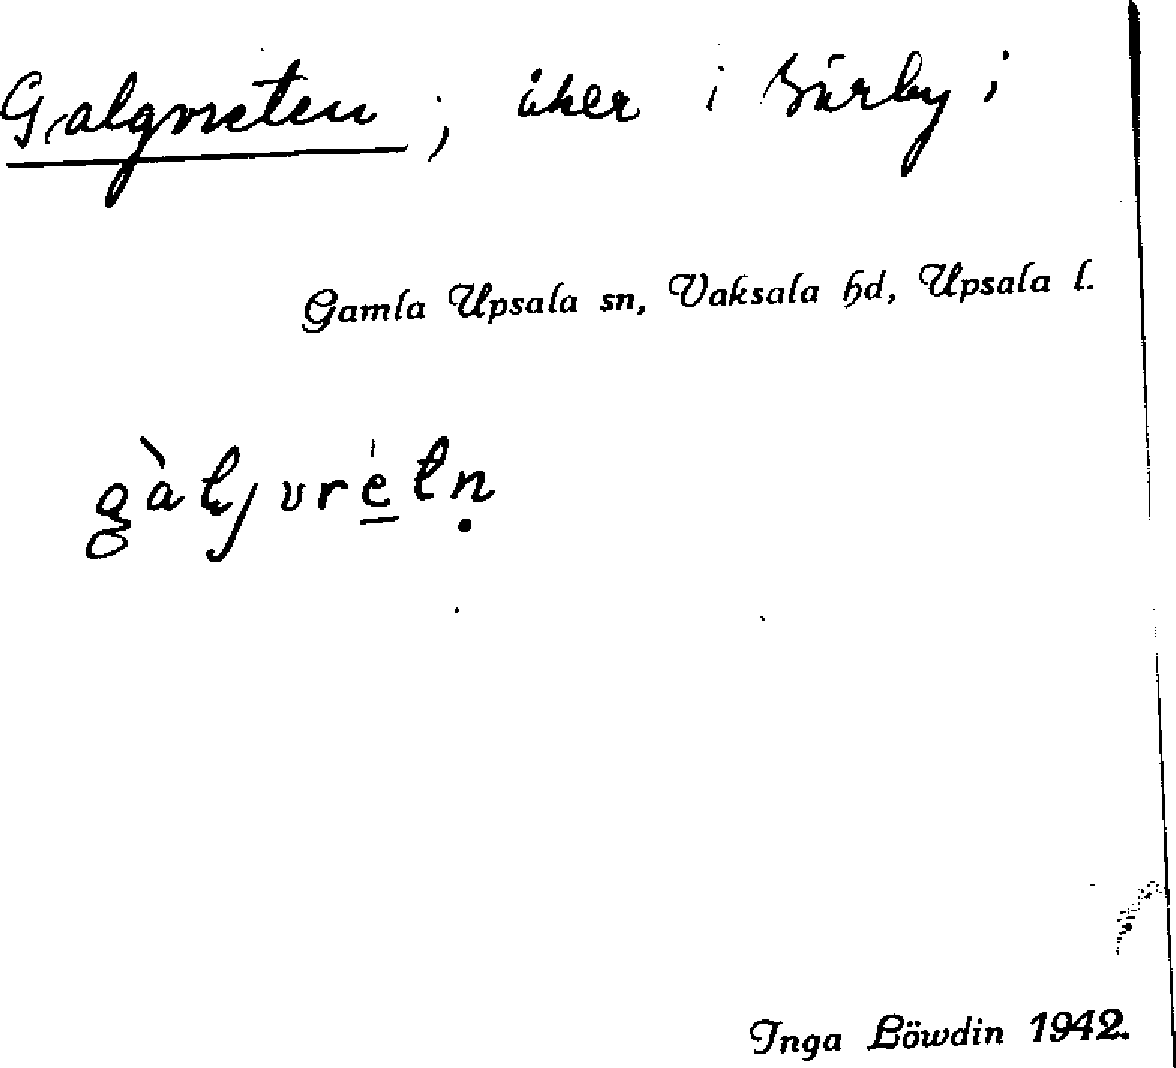 Galgvreten; åker i Bärby i
Gamla Upsala sn, Vaksala hd, Upsala l.
gàljvrè̱tṇ
Inga Löwdin 1942.